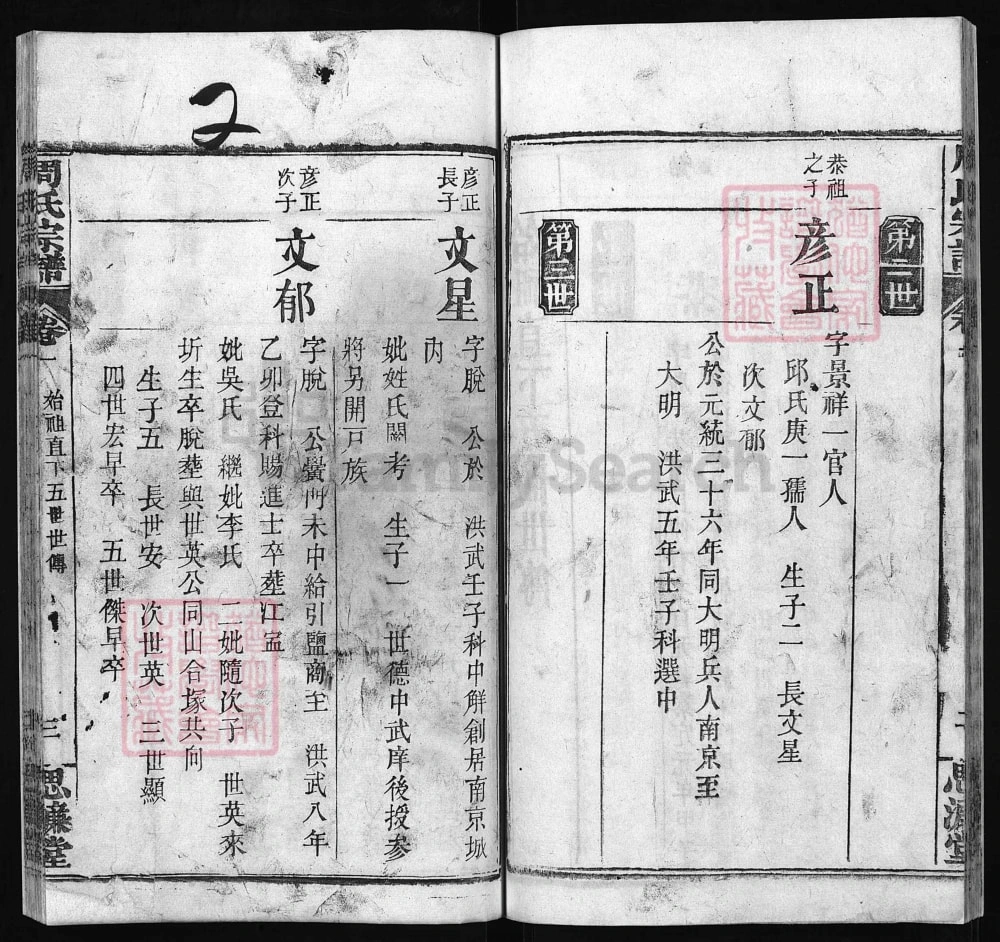 第二世
恭祖之子
彦正
字景祥一官人
邱氏庚一孺人　生子二　長文星
次文郁
公於元統三十六年同大明兵人南京至
大明　洪武五年壬子科選中
第三世
彦正長子
文星
字脫　公於　洪武壬子科中解創居南京城
內
妣姓氏闕考　生子一　世德中武庠後授參
將另開戸族
彦正次子
文郁
字脫　公黌門未中給引鹽商至　洪武八年
乙卯登科賜進士卒塟江𥁕
妣吳氏　繼妣李氏　一妣隨次子　世英來
圻生卒脫塟與世英公同山合塚共向
生子五　長世安　次世英　三世顯
四世宏早卒　五世傑早卒
周氏宗譜
卷一
始祖直下五世世傳
三
思濂堂
FamilySearch